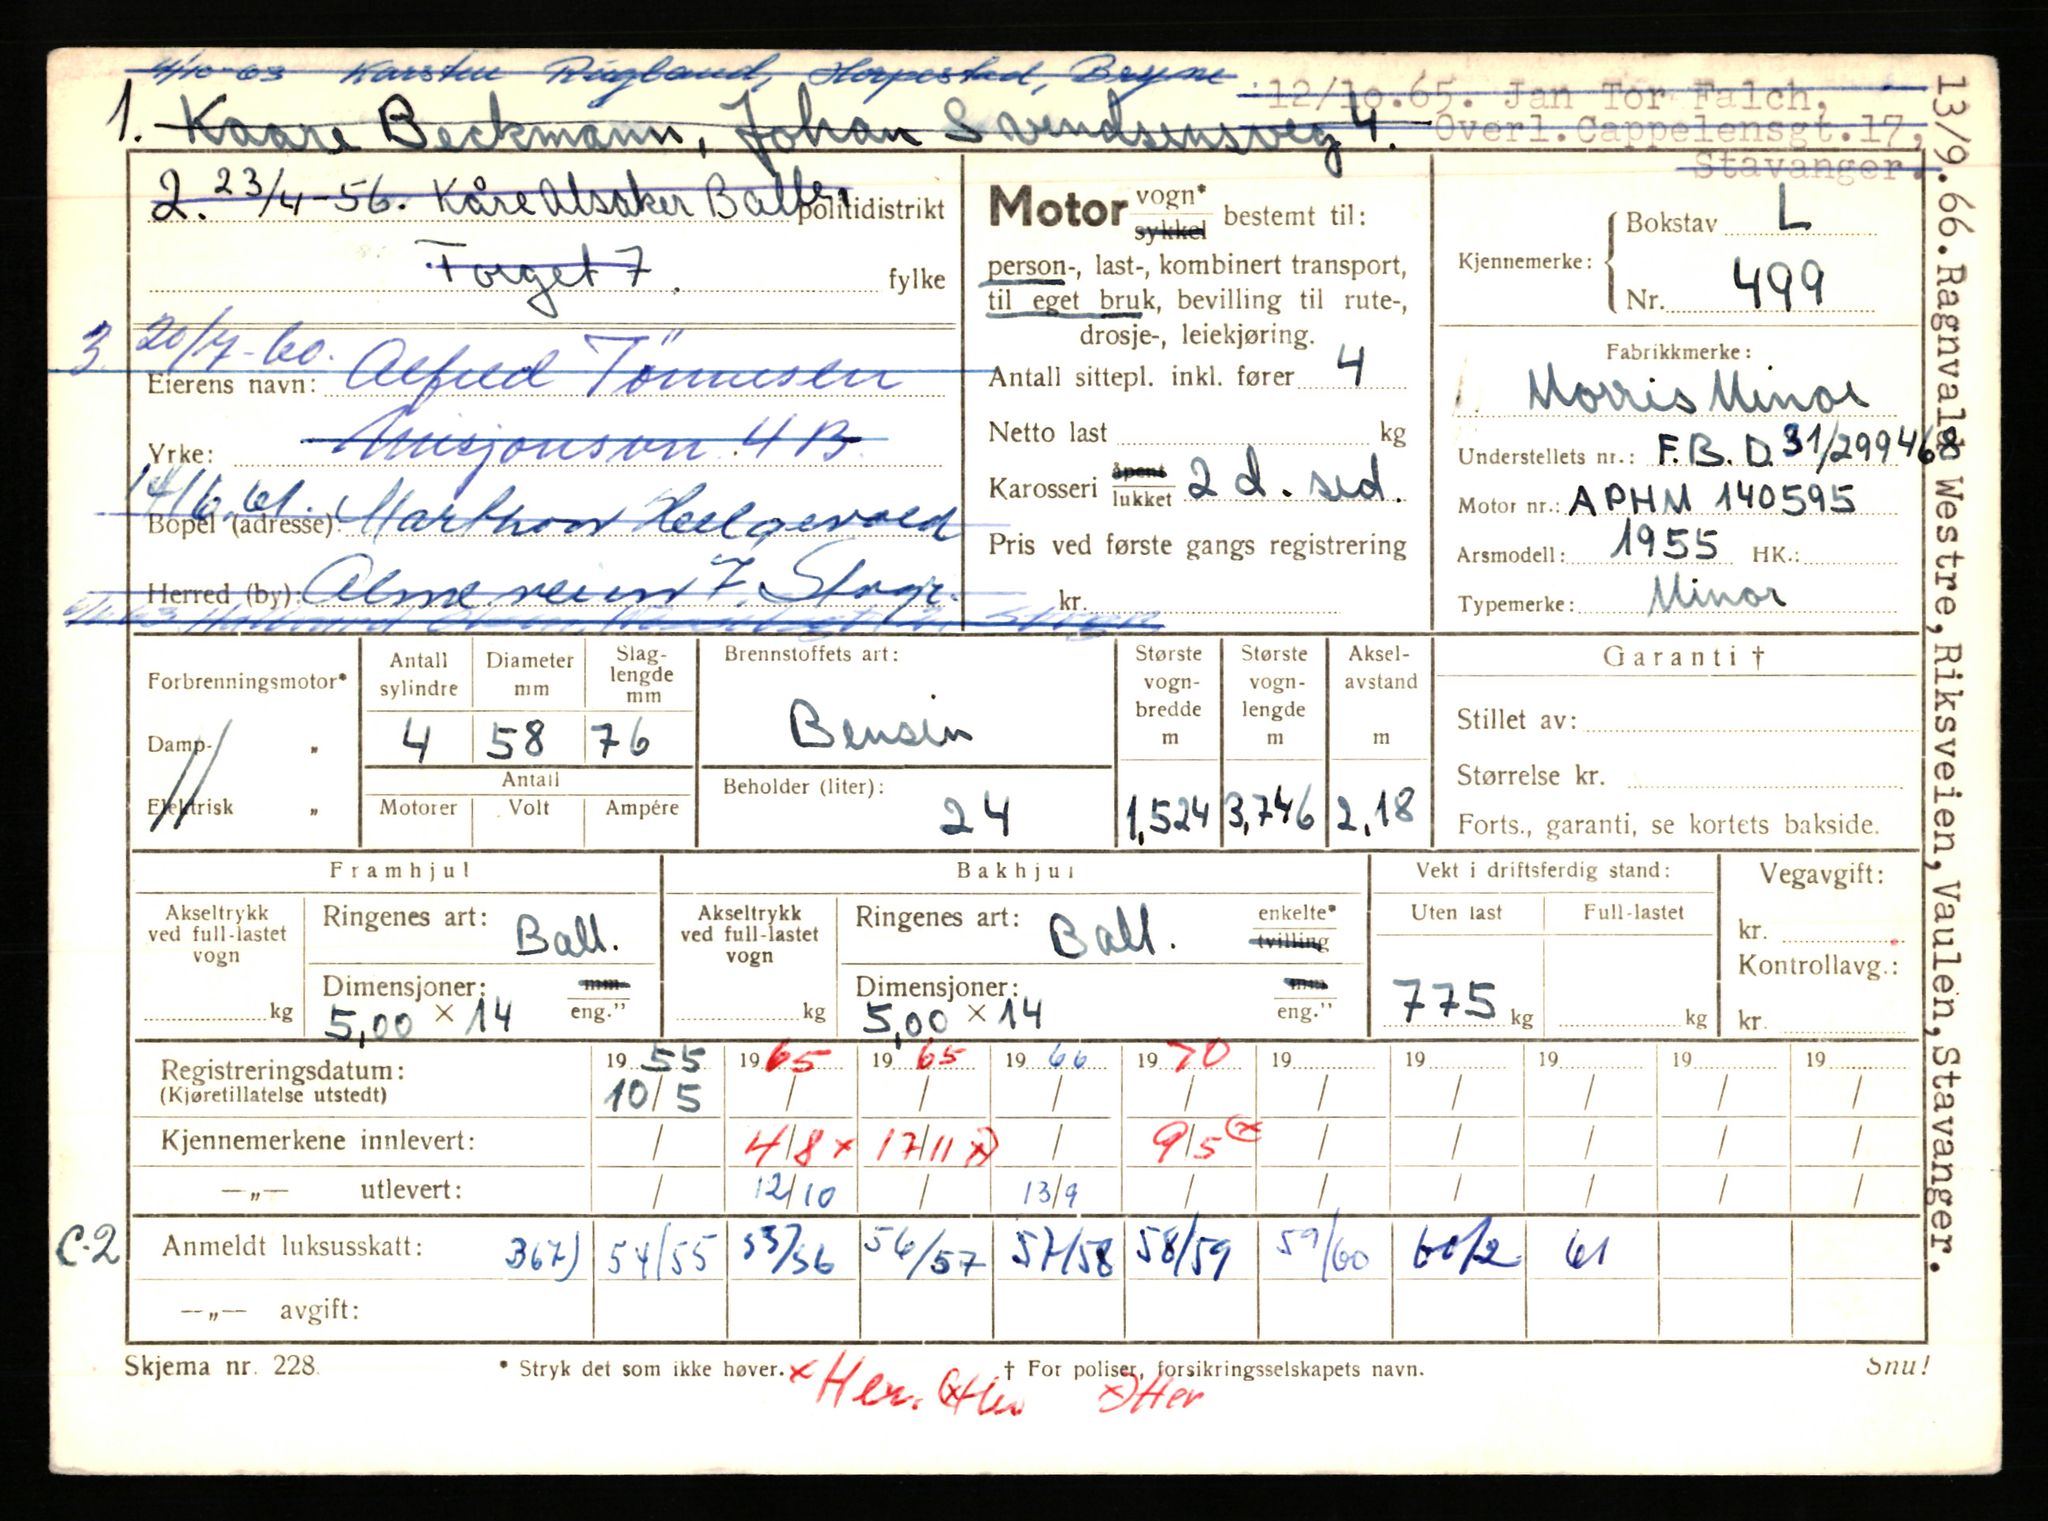 4/10-63 Karsten Rugland, Horpestad, Bryne
12/10.65. Jan Tor Falch,
1. Kaare Beckmann, Johan Svendsensveg 4.
Øverl.Cappelensgt.17,
Stavanger.
2. 23/4-56. Kåre Alsaker
politidistrikt
Torget 7.
fylke
3 20/7-60.
Eierens navn: Alfred Tönnesen
Yrke: Misjonsvn 4 B.
14/6.61.
Bopel (adresse): Marthon Helgevold
Herred (by): Almeveien 7, Stvgr.
Motor vogn* sykkel bestemt til:
person-, last-, kombinert transport,
til eget bruk, bevilling til rute-,
drosje-, leiekjøring.
Antall sittepl. inkl. fører 4
Netto last kg
Karosseri åpent lukket 2 d. sed.
Pris ved første gangs registrering
kr.
Kjennemerke:
Bokstav L
Nr. 499
Fabrikkmerke:
Morris Minor
Understellets nr.: F.B.D. 31/299468
Motor nr.: APHM 140595
Årsmodell: 1955 HK.:
Typemerke: Minor
13/9.66.Ragnvald Westre,Riksveien,Vaulen,Stavanger.
Forbrenningsmotor*
Damp- „
Elektrisk „
Antall sylindre
Diameter mm
Slag- lengde mm
4 58 76
Antall
Motorer Volt Ampére
Brennstoffets art:
Bensin
Beholder (liter):
24
Største vogn- bredde m
1,524
Største vogn- lengde m
3,746
Aksel- avstand m
2,18
Garanti †
Stillet av:
Størrelse kr.
Forts., garanti, se kortets bakside.
Framhjul
Akseltrykk ved full-lastet vogn
kg
Ringenes art: Ball.
Dimensjoner: mm eng."
5,00 × 14
Bakhjul
Akseltrykk ved full-lastet vogn
kg
Ringenes art: Ball. enkelte* tvilling
Dimensjoner: mm eng."
5,00 × 14
Vekt i driftsferdig stand:
Uten last Full-lastet
775 kg kg
Vegavgift:
kr.
Kontrollavg.:
kr.
Registreringsdatum: 19 55 19 65 19 65 19 66 19 70 19 19 19 19 19
(Kjøretillatelse utstedt) 10/5 / / / / / / / / /
Kjennemerkene innlevert: / 4/8 x 17/11 x) / 9/5 (x / / / / /
—„— utlevert: / 12/10 / 13/9 / / / / / /
C-2 Anmeldt luksusskatt: 367) 54/55 55/56 56/57 57/58 58/59 59/60 60/2 61
—„— avgift:
Skjema nr. 228.
* Stryk det som ikke høver.
† For poliser, forsikringsselskapets navn.
Snu!
x Her. (x Her x) Her